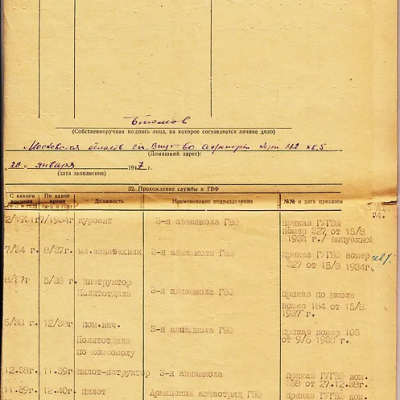 (Собственноручная подпись лица, на которое составляется личное дело)
Московская область ст. Внуково аэропорт
(Домашний адрес)
20 января 1947 г.
(дата заполнения)
32. Прохождение службы в ГВФ
С какого времени По какое время Должность Наименование подразделения №№ и дата приказов
курсант 3-я авиашкола ГВФ приказ ГУГВФ
номер 327 от 15/8
1934 г./ выпускной
7/34 г. 8/37г. мл.авиатехник 3-я авиашкола ГВФ приказ ГУГВФ номер
327 от 15/8 1934г.
5/38 г. инструктор
Политотдела 3-я авиашкола ГВФ приказ по школе
номер 184 от 15/8
1937 г.
5/38 г. 12/38г. пом.нач. 3-я авиашкола ГВФ приказ номер 103
Политотдела от 9/6 1938 г.
по комсомолу
12.38г. 11.39г. пилот-инструктор 3-я авиашкола приказ ГУГВФ ном.
от 27.12.38г.
11.39г. 12.40г. пилот ГВФ приказ ГУГВФ ном.